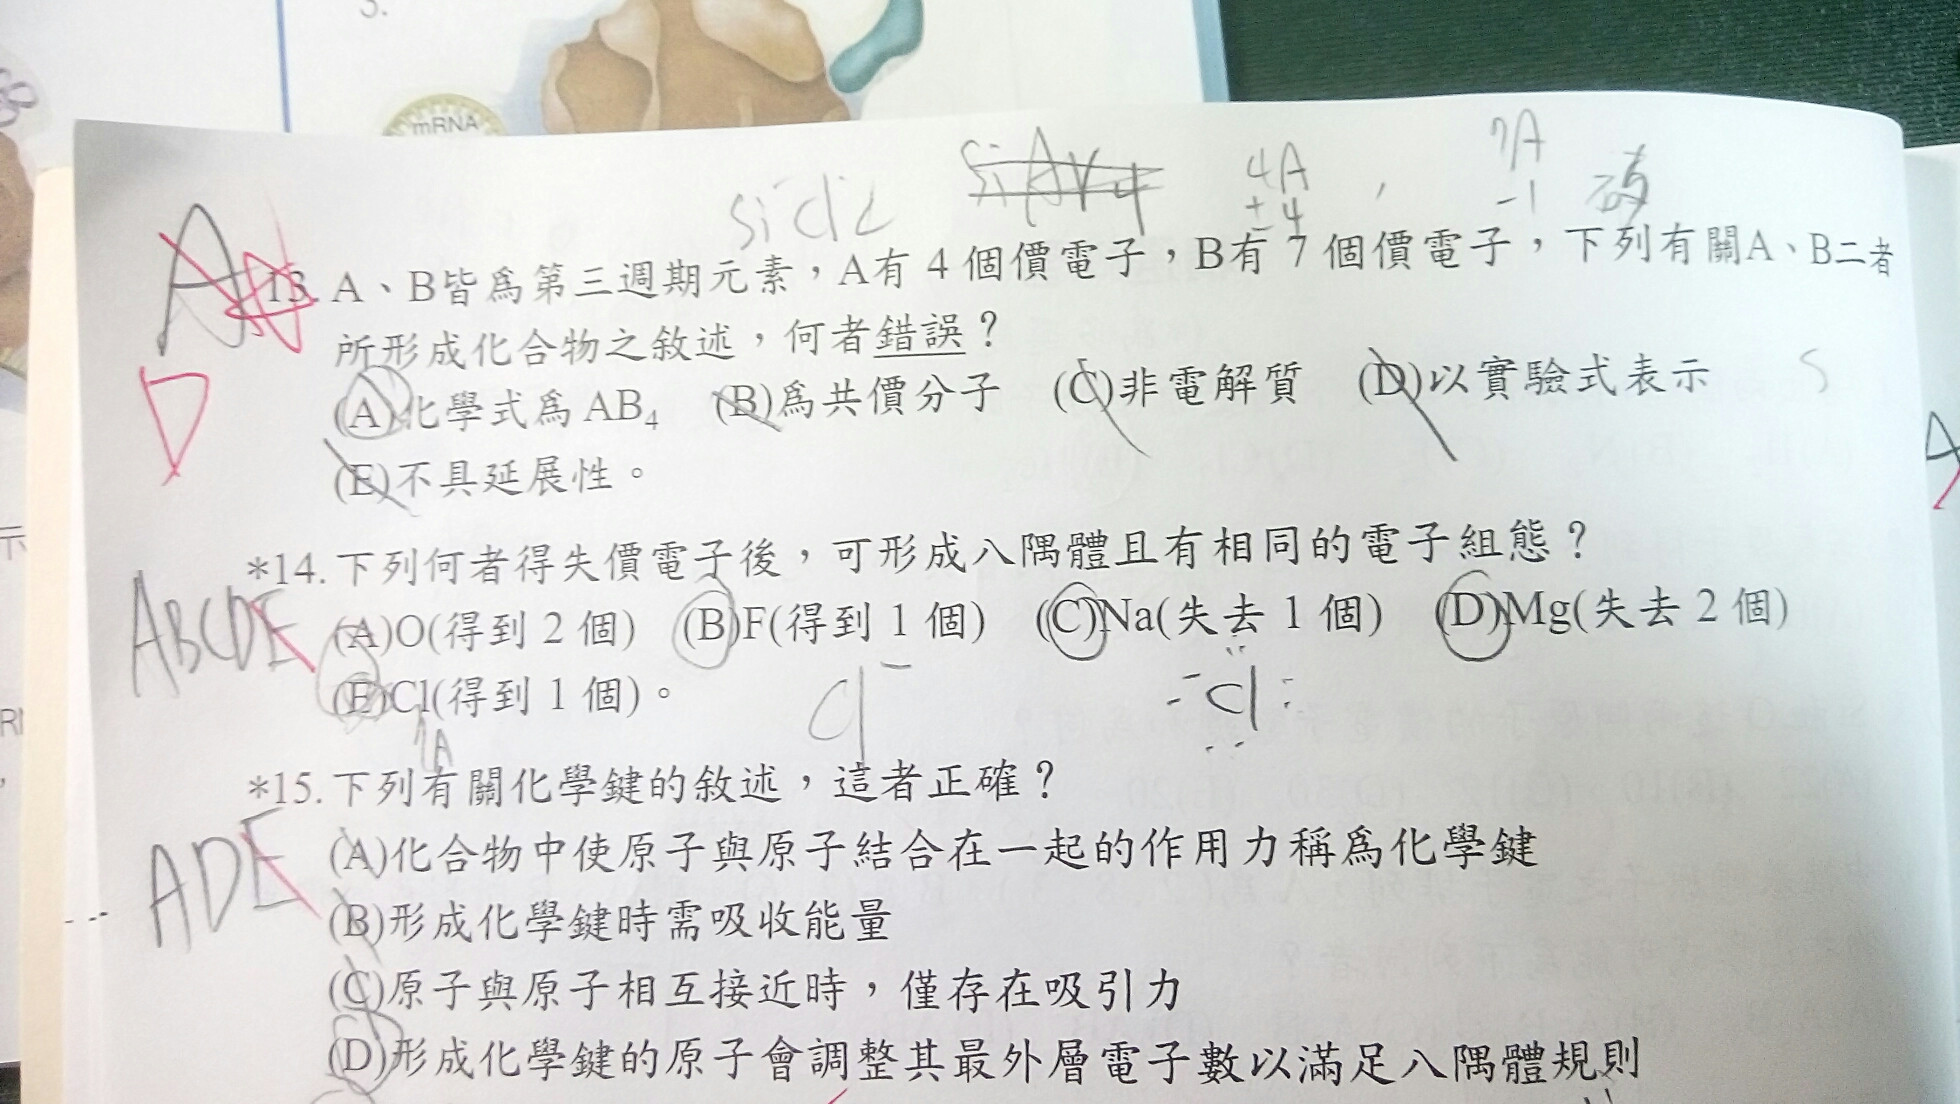 3.
mRNA
SiCl2
SiAr4
4A
±4
,
7A
-1
A
D
13. A、B皆為第三週期元素，A有 4 個價電子，B有 7 個價電子，下列有關A、B二者
所形成化合物之敘述，何者錯誤？
(A)化學式為 AB₄ (B)為共價分子 (C)非電解質 (D)以實驗式表示
(E)不具延展性。
ABCDE
*14. 下列何者得失價電子後，可形成八隅體且有相同的電子組態？
(A)O(得到 2 個) (B)F(得到 1 個) (C)Na(失去 1 個) (D)Mg(失去 2 個)
(E)Cl(得到 1 個)。
7A
Cl⁻
Cl
*15. 下列有關化學鍵的敘述，這者正確？
ADE
(A)化合物中使原子與原子結合在一起的作用力稱為化學鍵
(B)形成化學鍵時需吸收能量
(C)原子與原子相互接近時，僅存在吸引力
(D)形成化學鍵的原子會調整其最外層電子數以滿足八隅體規則